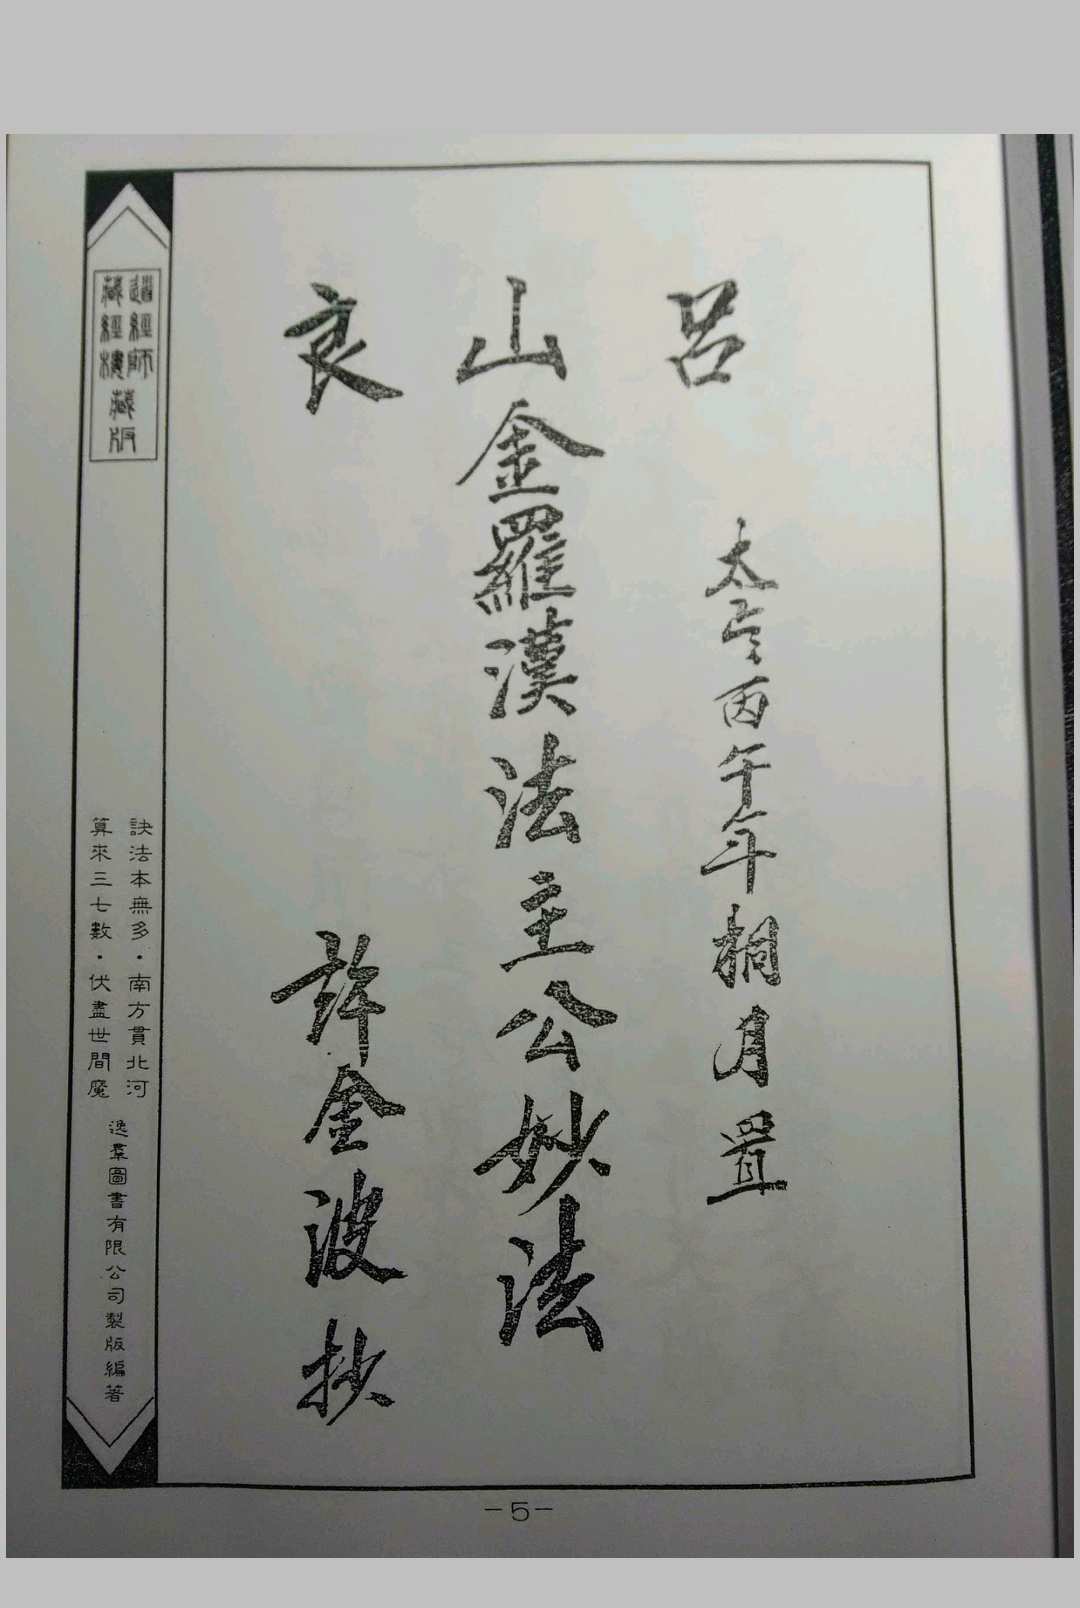 呂
太歲丙午年桐月置
山金羅漢法主公妙法
良
許金波抄
道經師
藏經樓
藏版
訣法本無多・南方貫北河
算來三七數・伏盡世間魔
逸羣圖書有限公司製版編著
-5-